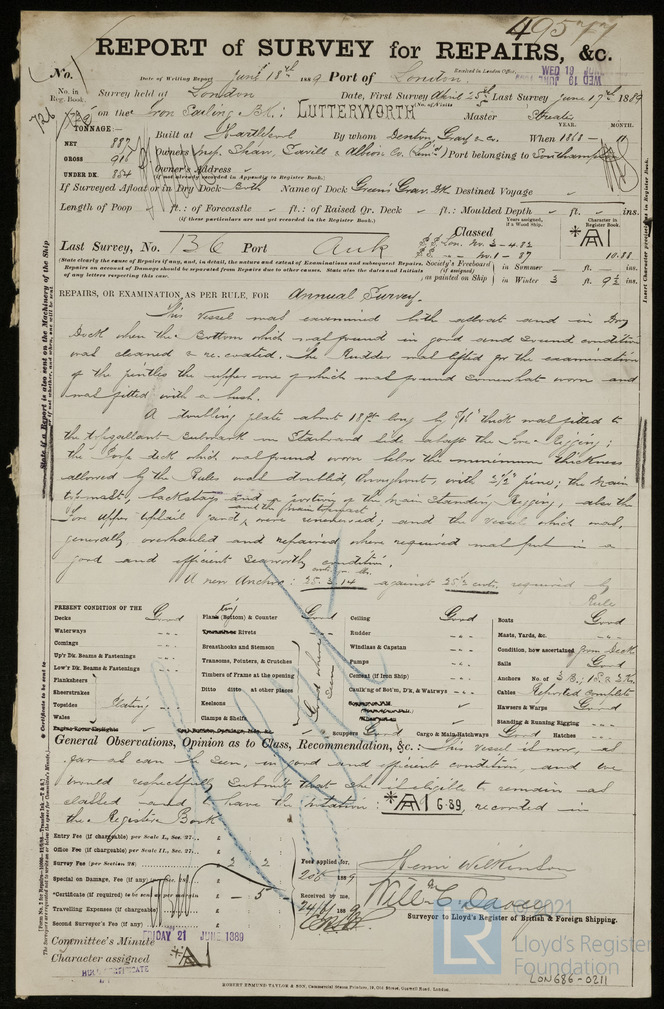 49577
REPORT of SURVEY for REPAIRS, &c.
No.
Date of Writing Report June 18th 1889 Port of London
Received in London Office, WED 19 JUNE
No. in Reg. Book.
Survey held at London
Date, First Survey April 25th Last Survey June 17th 1889
726
on the Iron Sailing Bk: LUTTERWORTH
(No. of Visits
Master Streater
TONNAGE:—
NET 887
GROSS
UNDER DK. 854
Built at Hartlepool By whom Denton Gray & Co. When 1868
YEAR. MONTH.
Owners Shaw, Savill & Albion Co. (Limd) Port belonging to Southampton
Owner's Address
(if not already recorded in Appendix to Register Book.)
If Surveyed Afloat or in Dry Dock Both Name of Dock Green's Grav. Dk Destined Voyage
Length of Poop ft.: of Forecastle ft.: of Raised Qr. Deck ft.: Moulded Depth ft. ins.
(if these particulars are not yet recorded in the Register Book.)
Last Survey, No. 136 Port Auk
Classed
Years assigned, if a Wood Ship.
Character in Register Book.
Lon. No. 3 - 4.82
No. 1 - 87
10.88
(State clearly the cause of Repairs if any, and, in detail, the nature and extent of Examinations and subsequent Repairs.
Repairs on account of Damage should be separated from Repairs due to other causes. State also the dates and Initials
of any letters respecting this case.
Society's Freeboard (if assigned) as painted on Ship
in Summer ft. ins.
in Winter 3 ft. 9½ ins.
REPAIRS, OR EXAMINATION, AS PER RULE, FOR Annual Survey.
This Vessel was examined both afloat and in Dry
Dock when the Bottom which was found in good and sound condition
was cleaned & re-coated. The Rudder was lifted for the examination
of the pintles the upper one of which was found somewhat worn and
was fitted with a bush.
A doubling plate about 18ft long by thick was fitted to
the topgallant bulwark on Starboard side abaft the Fore Rigging;
the Poop deck which was found worn below the minimum thickness
allowed by the Rules was doubled throughout, with 2½" pine; the Main
topmast, backstays and a portion of the Main Standing Rigging, also the
and the main topmast
Fore upper topsail yard, were renewed; and the vessel which was
generally overhauled and repaired where required was put in a
good and efficient seaworthy condition.
cwts. qrs. lbs.
A new Anchor: 25. 3. 14 against 25½ cwts. required by
Rule
PRESENT CONDITION OF THE
Decks Good
Waterways
Comings
Up'r Dk. Beams & Fastenings
Low'r Dk. Beams & Fastenings
Plankshiers
Sheerstrakes
Topsides Plating
Wales
Plating (Bottom) & Counter Good
Rivets
Breasthooks and Stemson
Transoms, Pointers, & Crutches
Timbers of Frame at the opening
Ditto ditto at other places
Keelsons
Clamps & Shelfs
Good where seen
Ceiling Good
Rudder
Windlass & Capstan
Pumps
Cement (if Iron Ship)
Caulk'ng of Bot'm, D'k, & Watrwys
Scuppers Good Cargo & Main Hatchways Good Hatches
Boats Good
Masts, Yards, &c.
Condition, how ascertained from Deck
Sails Good
Anchors No. of 3 B.; 1 S. & 2 K.
Cables Reported complete
Hawsers & Warps Good
Standing & Running Rigging
General Observations, Opinion as to Class, Recommendation, &c.:— This Vessel is now, as
far as can be seen, in good and efficient condition, and we
would respectfully submit that she is eligible to remain as
classed and to have the notation: 6.89 recorded in
the Register Book
Entry Fee (if chargeable) per Scale I., Sec. 27... £
Office Fee (if chargeable) per Scale II., Sec. 27.. £
Survey Fee (per Section 28) £ 2 2
Special on Damage, Fee (if any)
*Certificate (if required) to be sent as per margin £ - 5
Travelling Expenses (if chargeable)
Second Surveyor's Fee (if any) £
Fees applied for,
1889
Received by me,
1889
Henri Wilkinson
Will C. Davey
Surveyor to Lloyd's Register of British & Foreign Shipping.
Committee's Minute FRIDAY 21 JUNE 1889
Character assigned
HULL CERTIFICATE
ROBERT EDMUND TAYLOR & SON, Commercial Steam Printers, 19, Old Street, Goswell Road, London.
2021
LR
Lloyd's Register
Foundation
LON686-0211